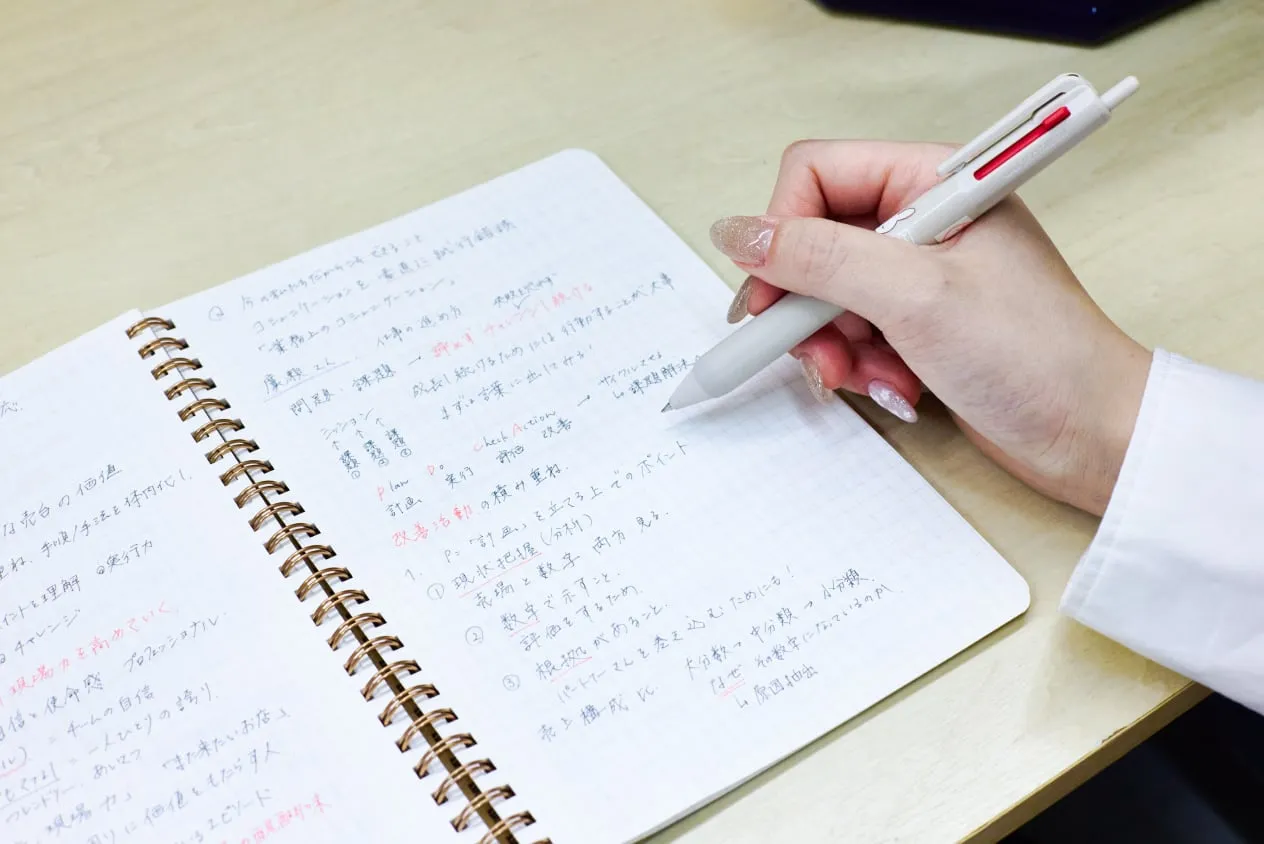 な売台の価値
重ね、手順/手法を体内化!
イントを理解 ◎実行力
チャレンジ
現場力を高めていく
自信と使命感 プロフェッショナル
= チームの自信
= 一人ひとりの誇り.
フレンドリー あいさつ
現場力」 「また来たいお店」
周りに価値をもたらす人
いるエピソード
コミュニケーションを 素直に 試行錯誤
「業務上のコミュニケーション」
仕事の進め方
問題・課題 → 諦めず チャレンジし続ける
成長し続けるためには行動することが大事
まずは言葉に出してみる!
ミッション
↑ ↑ ↑
課題 課題 課題
① ② ③
Plan Do Check Action → サイクルさせる
計画 実行 評価 改善 ↳ 課題解決
改善活動の積み重ね.
1. P=「計画」を立てる上でのポイント
① 現状把握 (分析)
売場と数字 両方見る.
② 数字で示すこと.
評価をするため.
③ 根拠があること.
パートナーさんを巻き込むためにも!
売上構成比 大分類→中分類→小分類.
なぜ その数字になっているのか
↳ 原因抽出